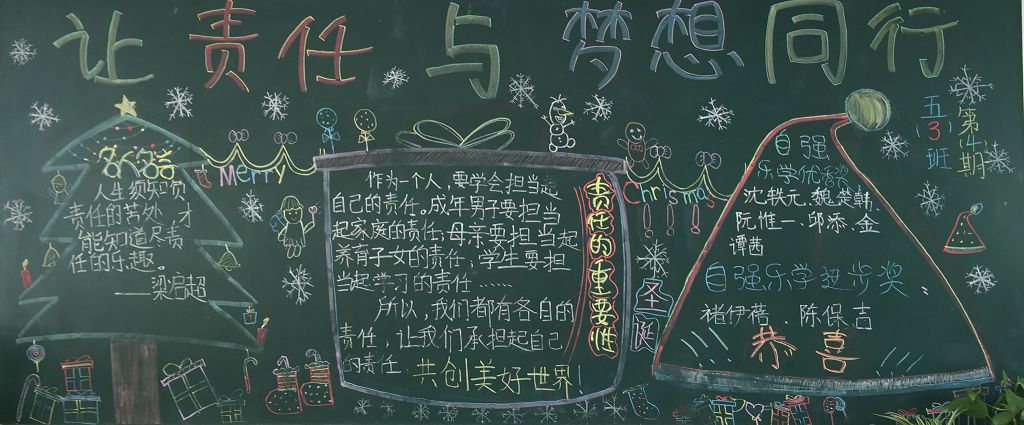 让责任与梦想同行
五(3)班
第4期
名人名言
人生须知负
责任的苦处,才
能知道尽责
任的乐趣。
——梁启超
Merry
Christmas
圣诞
责任的重要性
作为一个人,要学会担当起
自己的责任。成年男子要担当
起家庭的责任;母亲要担当起
养育子女的责任;学生要担
当起学习的责任……
所以,我们都有各自的
责任,让我们承担起自己
的责任.
共创美好世界!
自强
乐学优秀奖
沈轶元.魏楚韩.
阮惟一.邱添.金
谭茜
自强乐学进步奖
褚伊蓓、陈保吉
恭喜